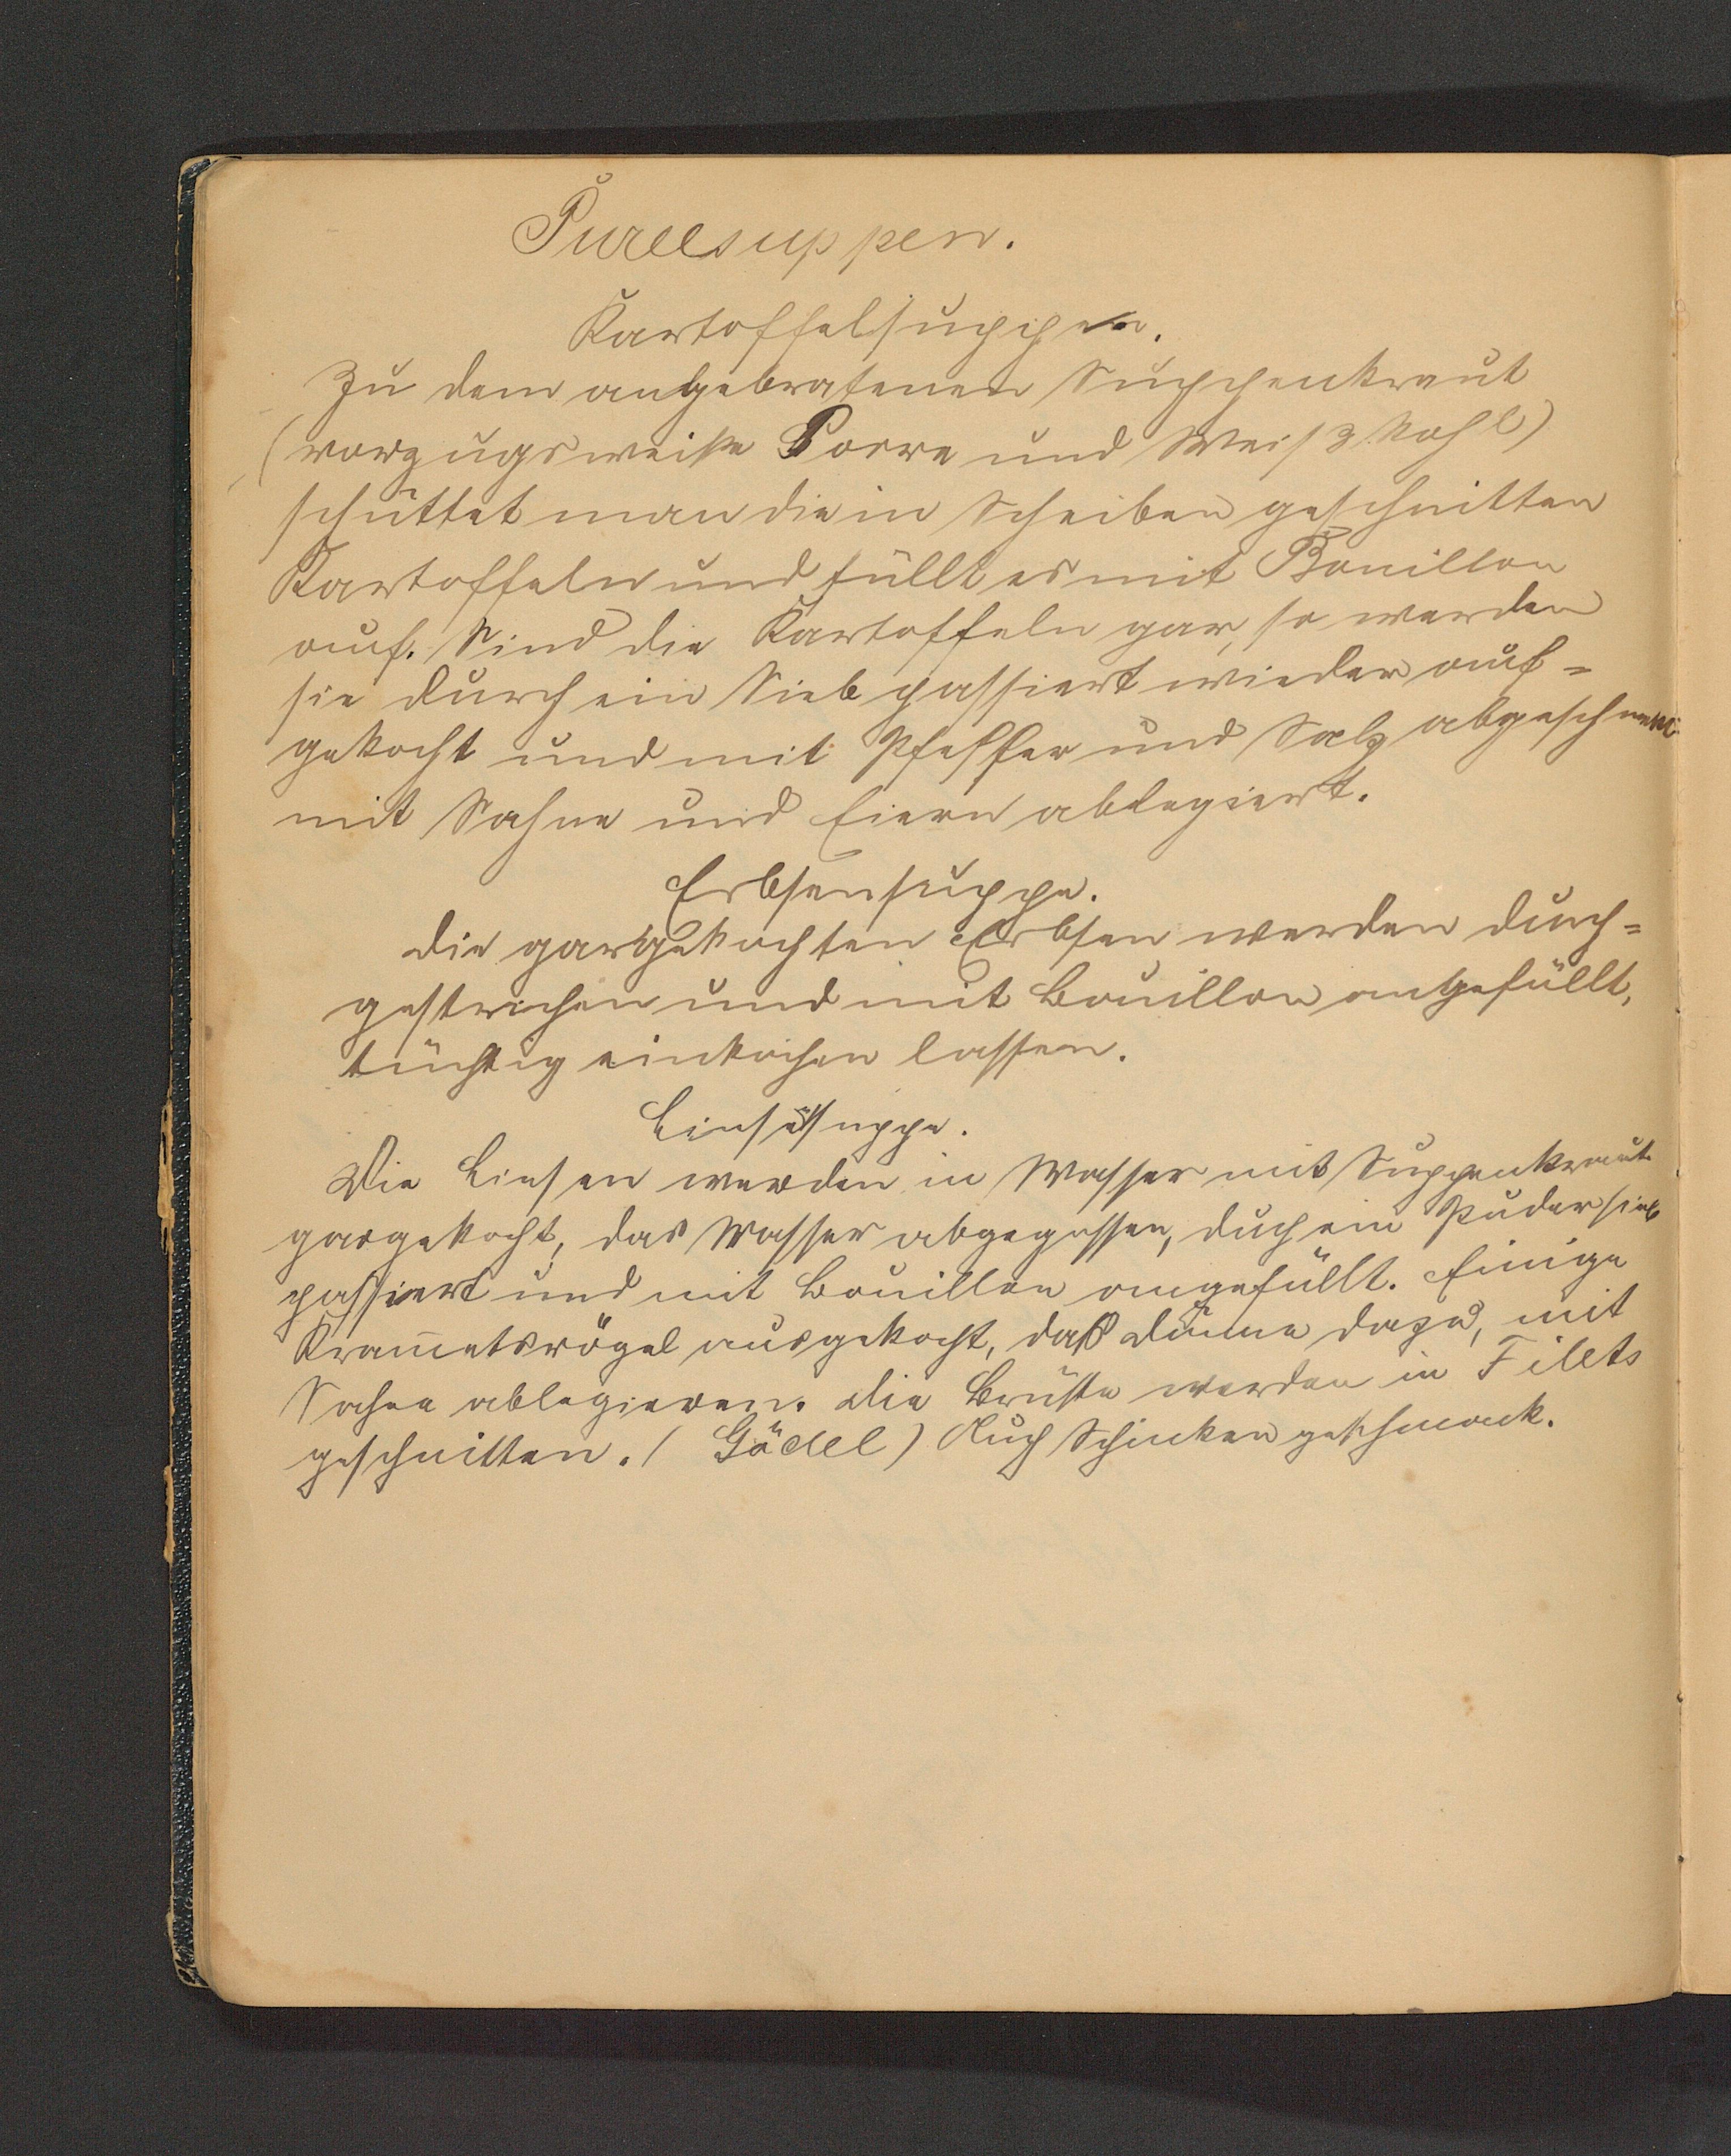 Pureesuppen.
Kartoffelsuppen.
Zu dem angebratenen Suppenkraut
(vorzugsweise Porre und Weißkohl)
schüttet man die in Scheiben geschnitten
Kartoffeln und füllt es mit Bouillon
auf. Sind die Kartoffeln gar, so werden
sie durch ein Sieb passiert wieder auf=
gekocht und mit Pfeffer und Salz
mit Sahne und Eiern ablegiert.
Erbsensuppe.
Die gargekochten Erbsen werden durch=
gestrichen und mit Bouillon angefüllt,
tüchtig einkochen lassen.
Linsesuppe.
Die Linsen werden in Wasser mit Suppenkraut
gargekocht, das Wasser abgegossen, duch ein Pudersieb
passiert und mit Bouillon angefüllt. Einige
Krametsvögel ausgekocht, daß dünne dazu, mit
Sahne ablegieren. Die Brüste werden in Filets
geschnitten. (Gödel) Auch Schinken geschmack.